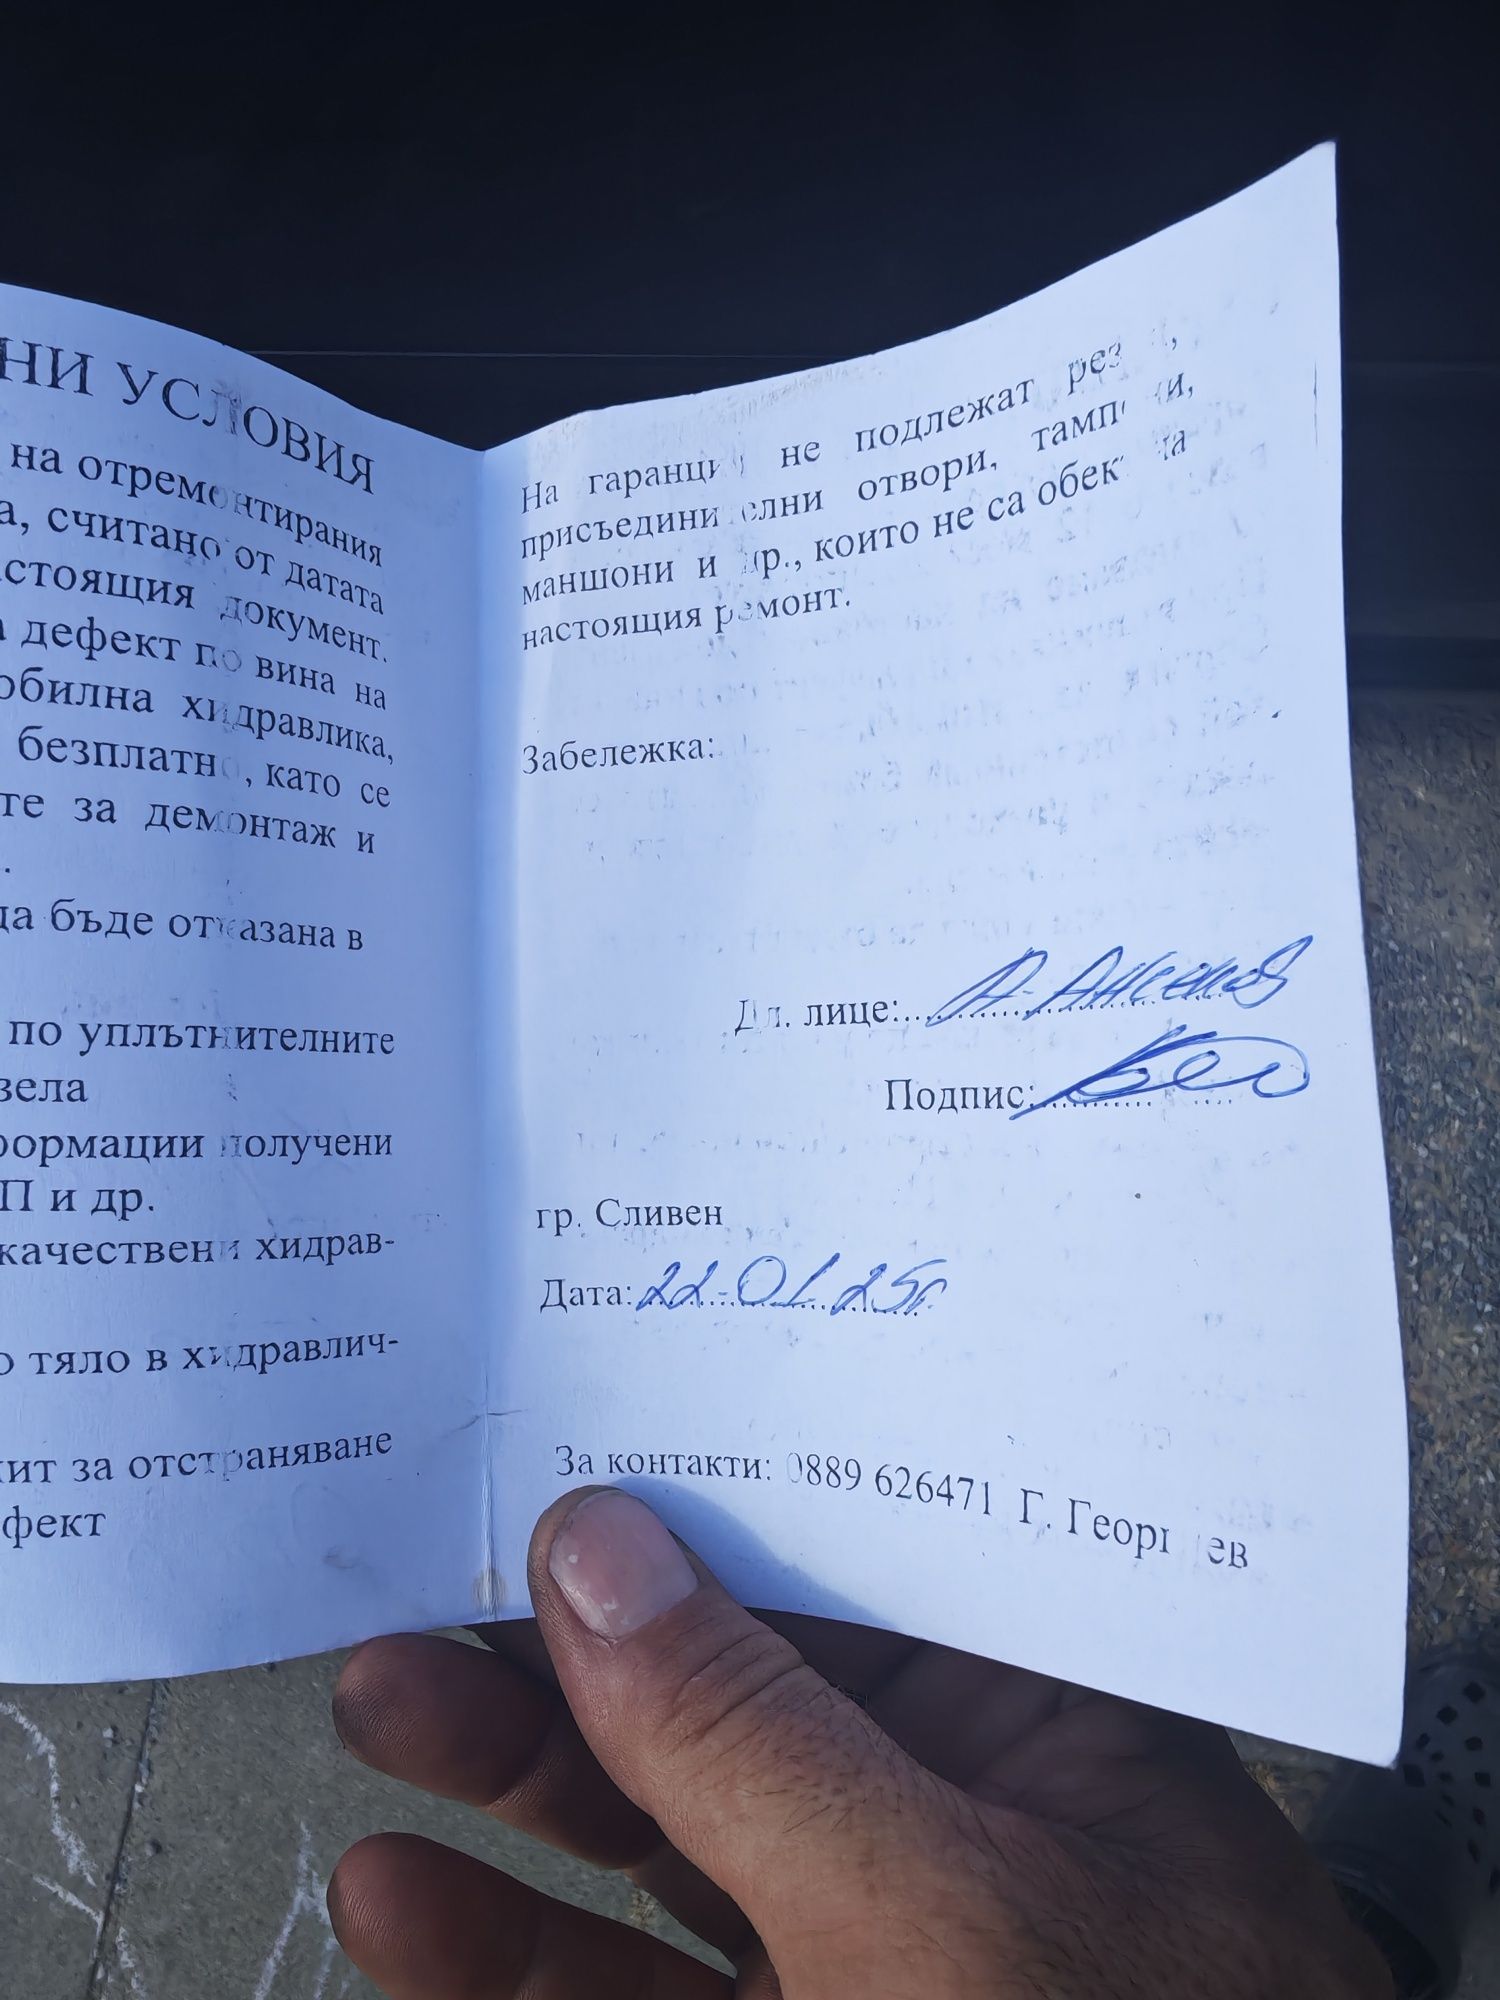 НИ УСЛОВИЯ
на отремонтирания
а, считано от датата
стоящия документ.
дефект по вина на
обилна хидравлика,
безплатно, като се
те за демонтаж и
.
да бъде отказана в
по уплътнителните
зела
формации получени
П и др.
качествени хидрав-
о тяло в хидравлич-
ит за отстраняване
фект
На гаранция не подлежат
присъединителни отвори, тампони,
маншони и др., които не са обект на
настоящия ремонт.
Забележка:
Дл. лице: А. Анженов
Подпис:
гр. Сливен
Дата: 22.01.25г.
За контакти: 0889 626471 Г. Георгиев